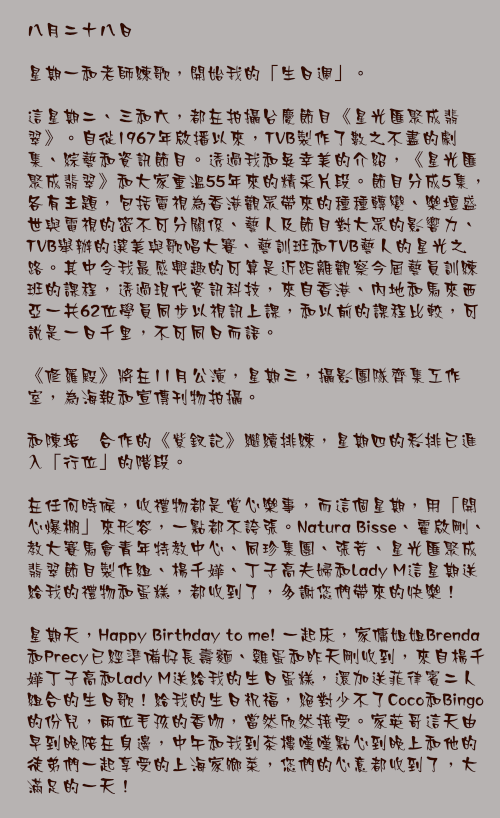 八月二十八日
星期一和老師練歌，開始我的「生日週」。
這星期二、三和六，都在拍攝台慶節目《星光匯聚成翡
翠》。自從1967年啟播以來，TVB製作了數之不盡的劇
集、綜藝和資訊節目。透過我和吳幸美的介紹，《星光匯
聚成翡翠》和大家重溫55年來的精采片段。節目分成5集，
各有主題，包括電視為香港觀眾帶來的種種轉變、樂壇盛
世與電視的密不可分關係、藝人及節目對大眾的影響力、
TVB舉辦的選美與歌唱大賽、藝訓班和TVB藝人的星光之
路。其中令我最感興趣的可算是近距離觀察今屆藝員訓練
班的課程，透過現代資訊科技，來自香港、內地和馬來西
亞一共62位學員同步以視訊上課，和以前的課程比較，可
說是一日千里，不可同日而語。
《修羅殿》將在11月公演，星期三，攝影團隊齊集工作
室，為海報和宣傳刊物拍攝。
和陳培 合作的《紫釵記》繼續排練，星期四的彩排已進
入「行位」的階段。
在任何時候，收禮物都是賞心樂事，而這個星期，用「開
心爆棚」來形容，一點都不誇張。Natura Bisse、霍啟剛、
教大賽馬會青年特教中心、同珍集團、張芳、星光匯聚成
翡翠節目製作組、楊千嬅、丁子高夫婦和Lady M這星期送
給我的禮物和蛋糕，都收到了，多謝您們帶來的快樂！
星期天，Happy Birthday to me! 一起床，家傭姐姐Brenda
和Precy已經準備好長壽麵、雞蛋和昨天剛收到，來自楊千
嬅丁子高和Lady M送給我的生日蛋糕，還加送菲律賓二人
組合的生日歌！給我的生日祝福，絕對少不了Coco和Bingo
的份兒，兩位毛孩的香吻，當然欣然接受。家英哥這天由
早到晚陪在身邊，中午和我到茶樓嘆嘆點心到晚上和他的
徒弟們一起享受的上海家鄉菜，您們的心意都收到了，大
滿足的一天！